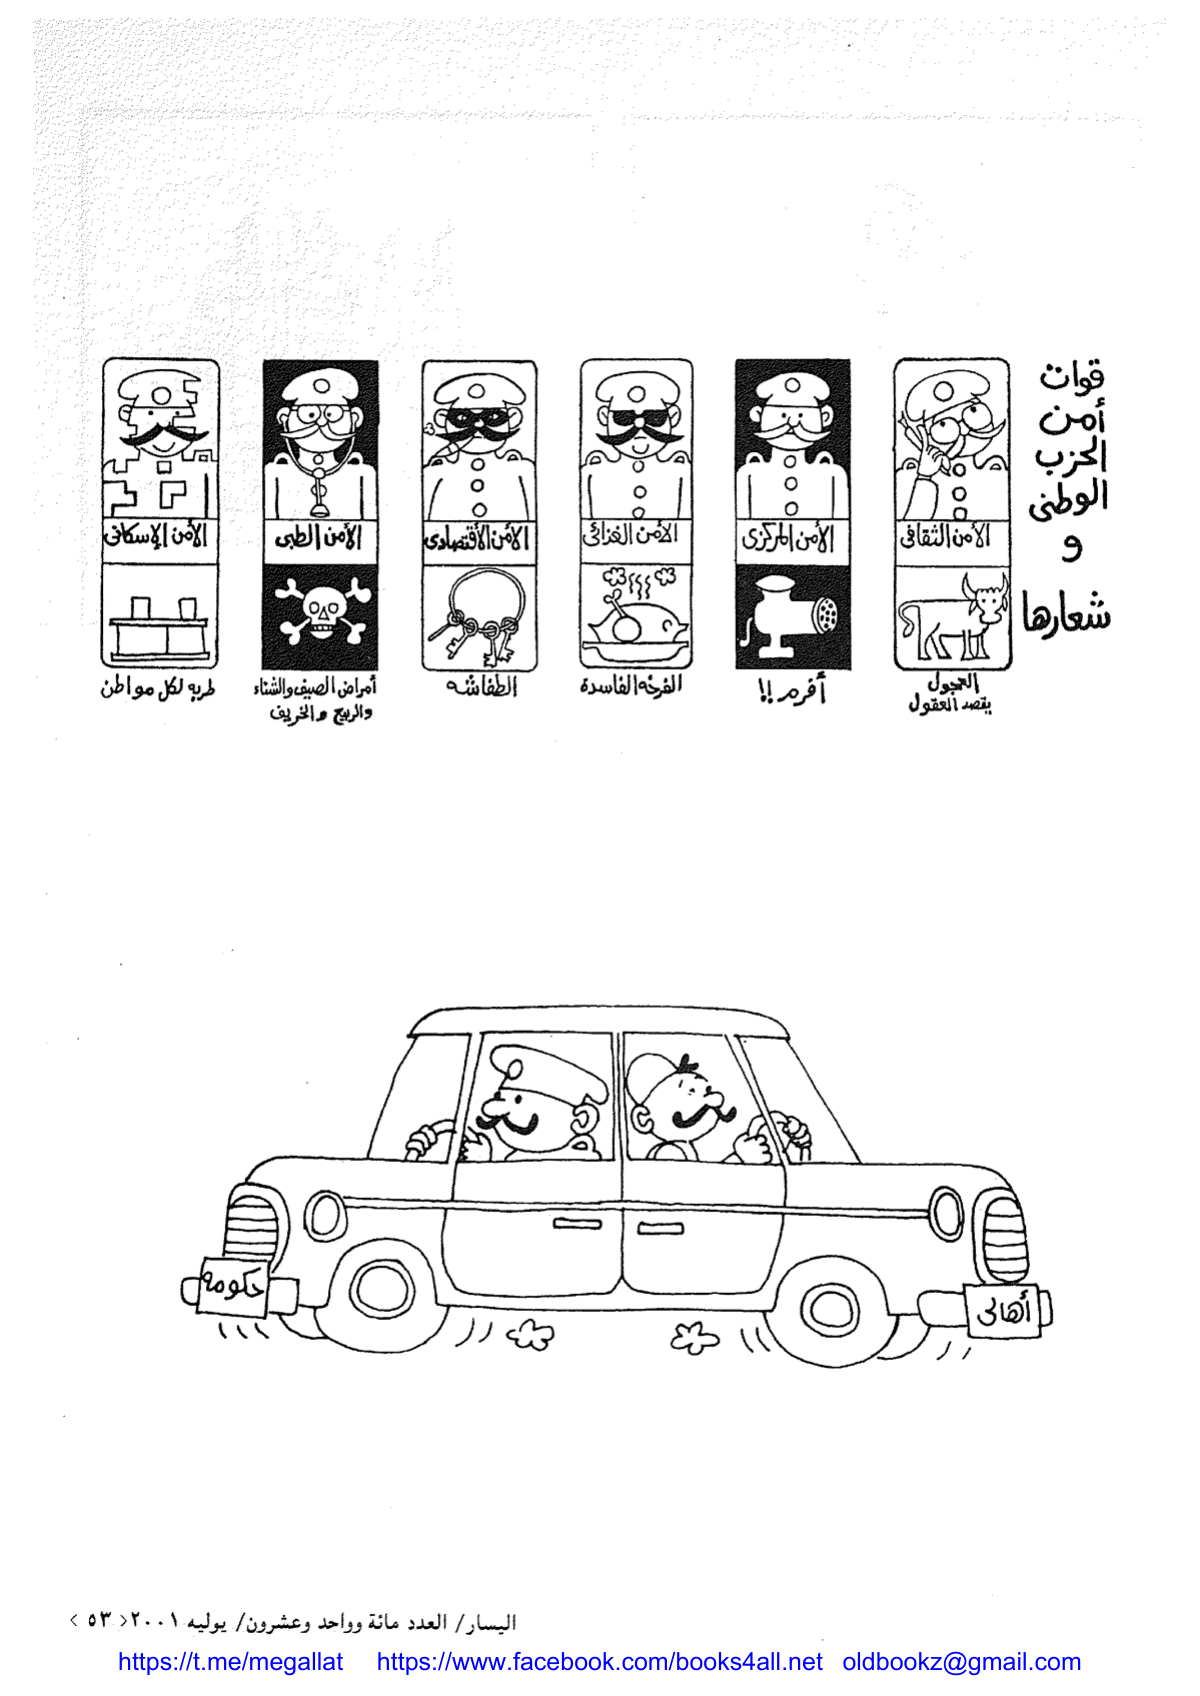 قوات
أمن
الحزب
الوطنى
و
شعارها
الأمن الثقافى
العجول
يقصد العقول
الأمن المركزى
أفرم !!
الأمن الغذائى
الفرخه الفاسدة
الأمن الأقتصادى
الطفاشه
الأمن الطبى
أمراض الصيف والشتاء
والربيع والخريف
الأمن الإسكانى
طربه لكل مواطن
حكومه
أهالى
اليسار/ العدد مائة وواحد وعشرون/ يوليه ٢٠٠١< ٥٣ >
https://t.me/megallat https://www.facebook.com/books4all.net oldbookz@gmail.com